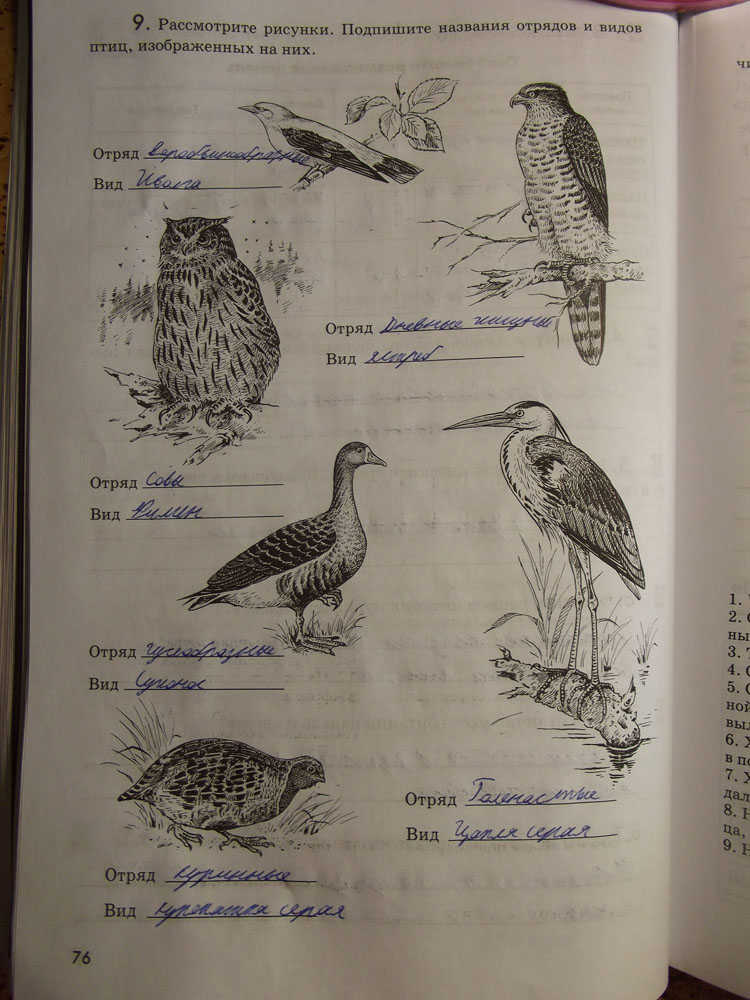 9. Рассмотрите рисунки. Подпишите названия отрядов и видов
птиц, изображенных на них.
Отряд воробьинообразные
Вид Иволга
Отряд Дневные хищные
Вид ястреб
Отряд Совы
Вид Филин
Отряд гусеобразные
Вид
Отряд Голенастые
Вид Цапля серая
Отряд куриные
Вид куропатка серая
76
чи
1.
2. С
ны
3. Т
4. С
5. С
ной
вы
6. Х
в по
7. Х
дал
8. Н
ца,
9. Н